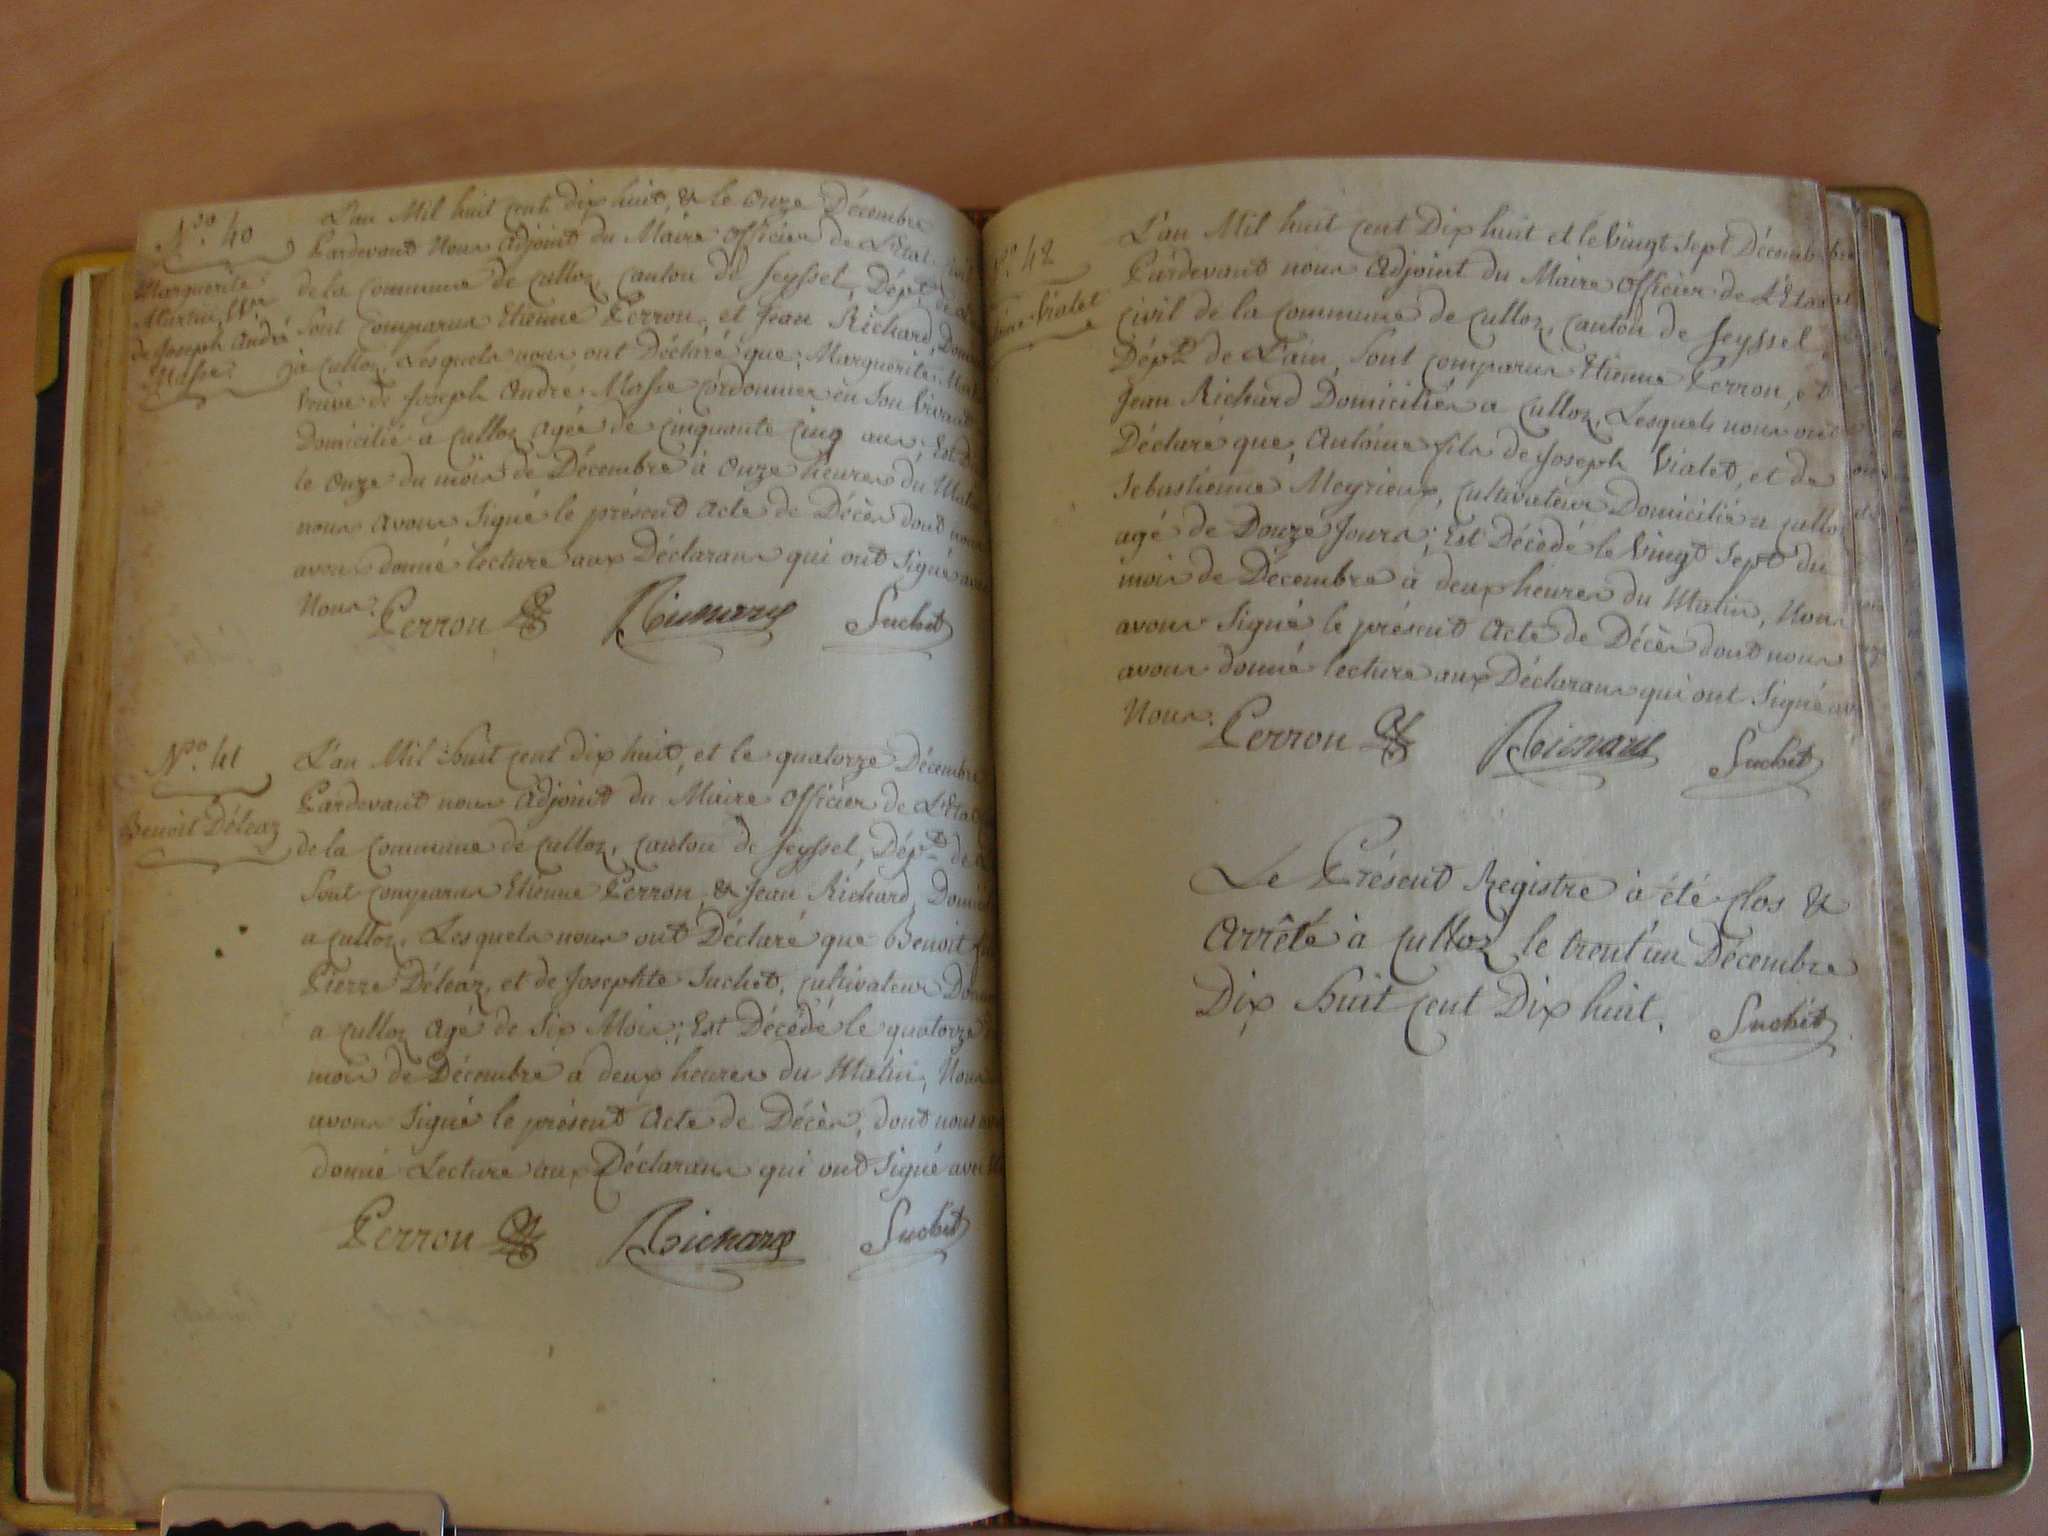 N.° 40
Marguerite
Martin, V.ve
de Joseph André
Masse
L'an Mil huit cent dix huit, & le Onze Décembre
Pardevant Nous Adjoint du Maire Officier de L'Etat civil
de la Commune de Culloz, canton de Seyssel, Dép.t de
Sont comparus Etienne Perron, et Jean Richard,
à Culloz, Lesquels nous ont Déclaré que, Marguerite
Veuve de Joseph André Masse Cordonnier en Son Vivant
Domicilié a Culloz agée de cinquante cinq ans, Est
le Onze du mois de Décembre à Onze heures du
nous avons Signé le présent Acte de Décès dont nous
avons donné lecture aux Déclarans qui ont Signé avec
Nous. Perron Richard Suchet
N.° 41
Benoit Déléaz
L'an Mil huit cent dix huit, et le quatorze Décembre
Pardevant nous Adjoint du Maire Officier de
de la Commune de Culloz, Canton de Seyssel, Dép.t de
Sont comparus Etienne Perron, & Jean Richard,
a Culloz, Lesquels nous ont Déclaré que Benoit
Pierre Déléaz, et de Josephte Suchet, cultivateur
a Culloz Agé de Six Mois, Est Décédé le quatorze
mois de Décembre a deux heures du Matin, Nous
avons Signé le présent Acte de Décès, dont nous
donné Lecture aux Déclarans qui ont Signé avec
Perron Richard Suchet
N.° 42
Vialet
L'an Mil huit cent Dix huit et le Vingt Sept Décembre
Pardevant nous Adjoint du Maire Officier de L'Etat
Civil de la Commune de Culloz, canton de Seyssel
Dép.t de L'ain, Sont comparus Etienne Perron, et
Jean Richard Domiciliés a Culloz, Lesquels nous ont
Déclaré que, Antoine fils de Joseph Vialet, et de
Sebastienne Meyrieux, cultivateur Domicilié a Culloz
agé de Douze Jours, Est Décédé le Vingt Sept du
mois de Décembre à deux heures du Matin, Nous
avons Signé le présent Acte de Décès dont nous
avons donné lecture aux Déclarans qui ont Signé
Nous. Perron Richard Suchet
Le Présent Registre à été clos &
Arrêté à Culloz le trent'un Décembre
Dix huit cent Dix huit. Suchet